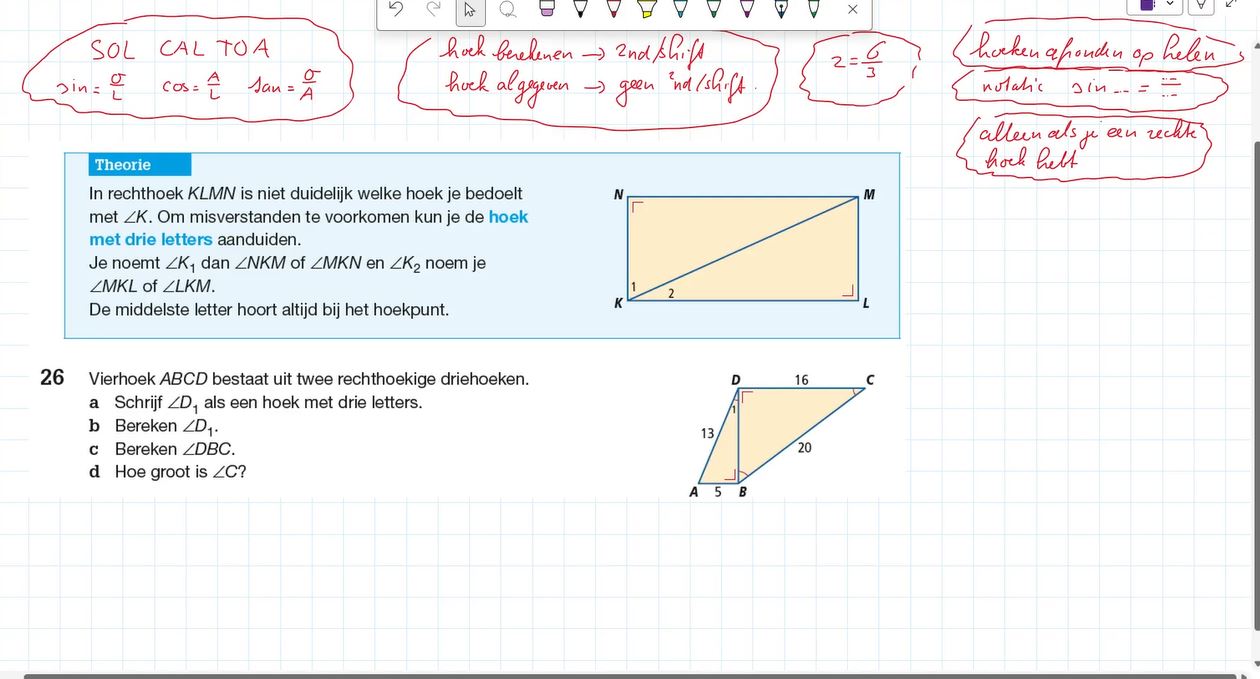 SOL CAL TOA
sin = O/L cos = A/L tan = O/A
hoek berekenen → 2nd/shift
hoek al gegeven → geen 2nd/shift.
2 = 6/3
hoeken afronden op helen
notatie sin ... = ...
alleen als je een rechte
hoek hebt
Theorie
In rechthoek KLMN is niet duidelijk welke hoek je bedoelt
met ∠K. Om misverstanden te voorkomen kun je de hoek
met drie letters aanduiden.
Je noemt ∠K₁ dan ∠NKM of ∠MKN en ∠K₂ noem je
∠MKL of ∠LKM.
De middelste letter hoort altijd bij het hoekpunt.
N M
1 2
K L
26 Vierhoek ABCD bestaat uit twee rechthoekige driehoeken.
a Schrijf ∠D₁ als een hoek met drie letters.
b Bereken ∠D₁.
c Bereken ∠DBC.
d Hoe groot is ∠C?
D 16 C
1
13
20
A 5 B